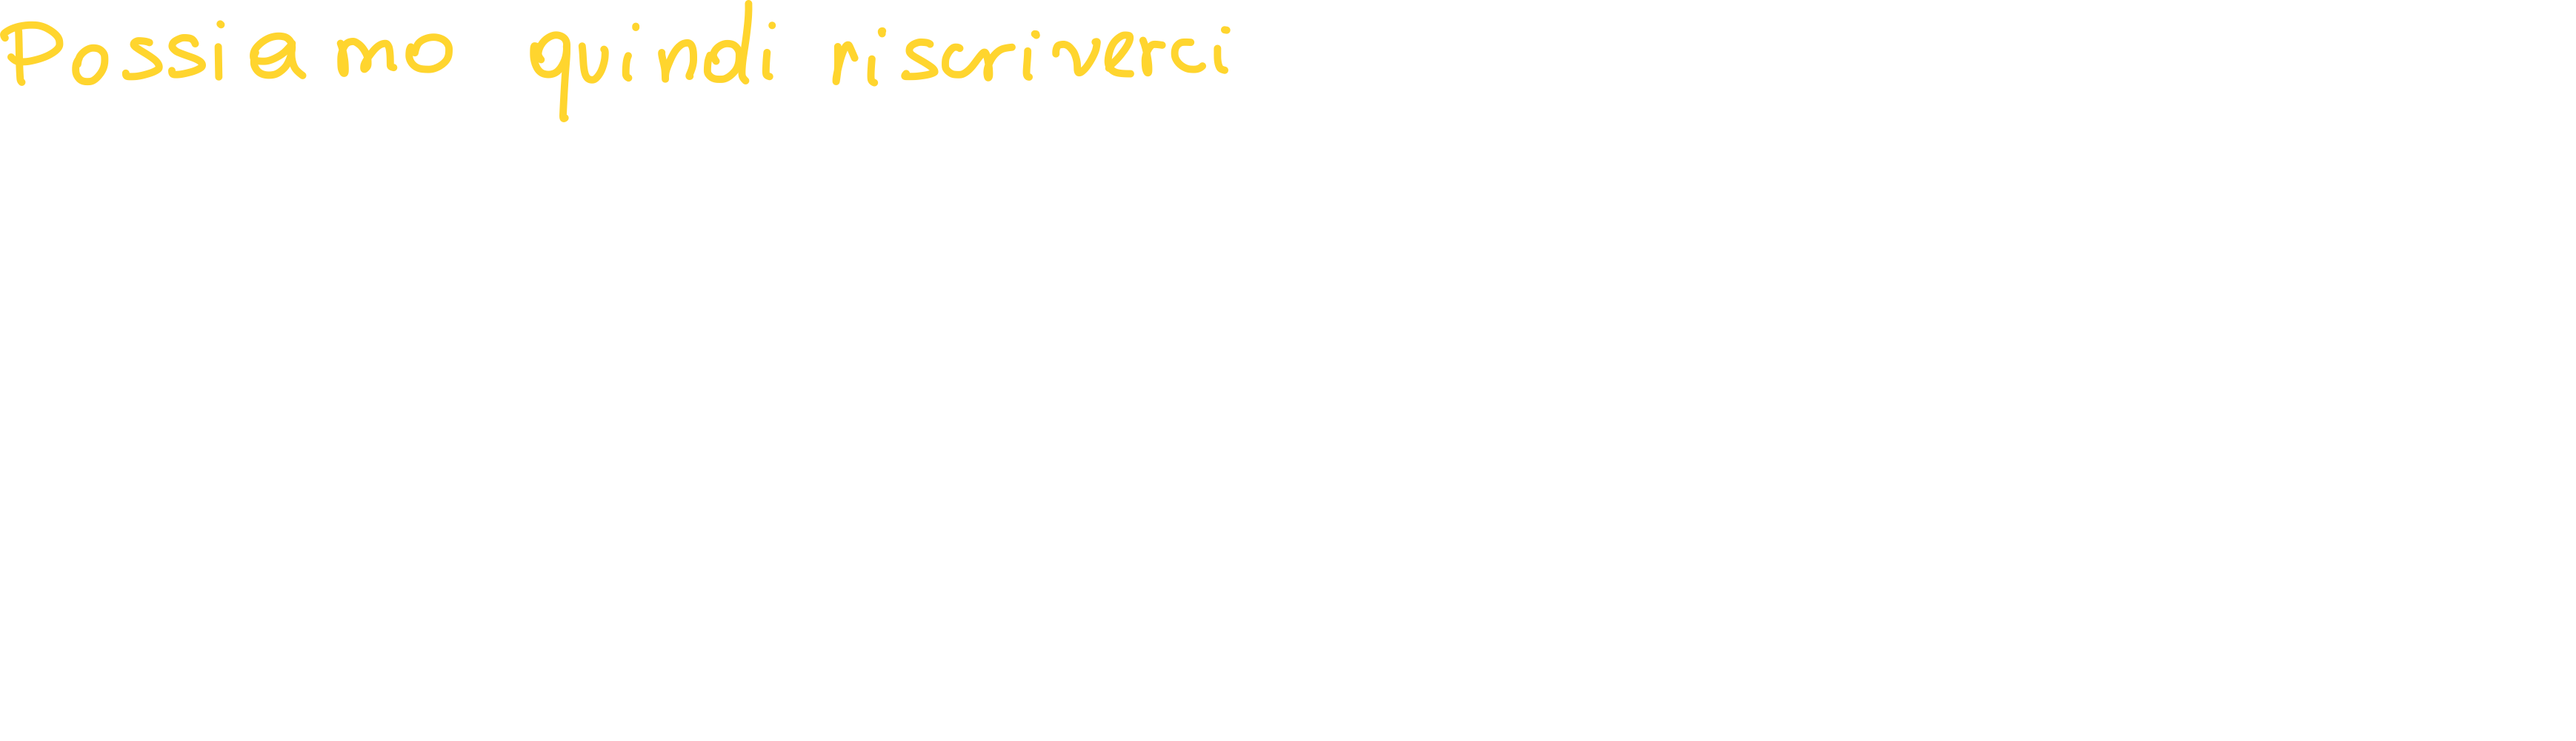 Possiamo quindi riscriverci